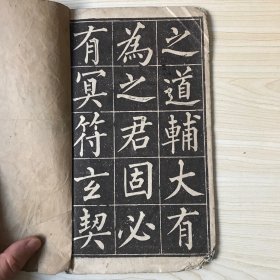 之道輔大有
為之君固必
有冥符玄契